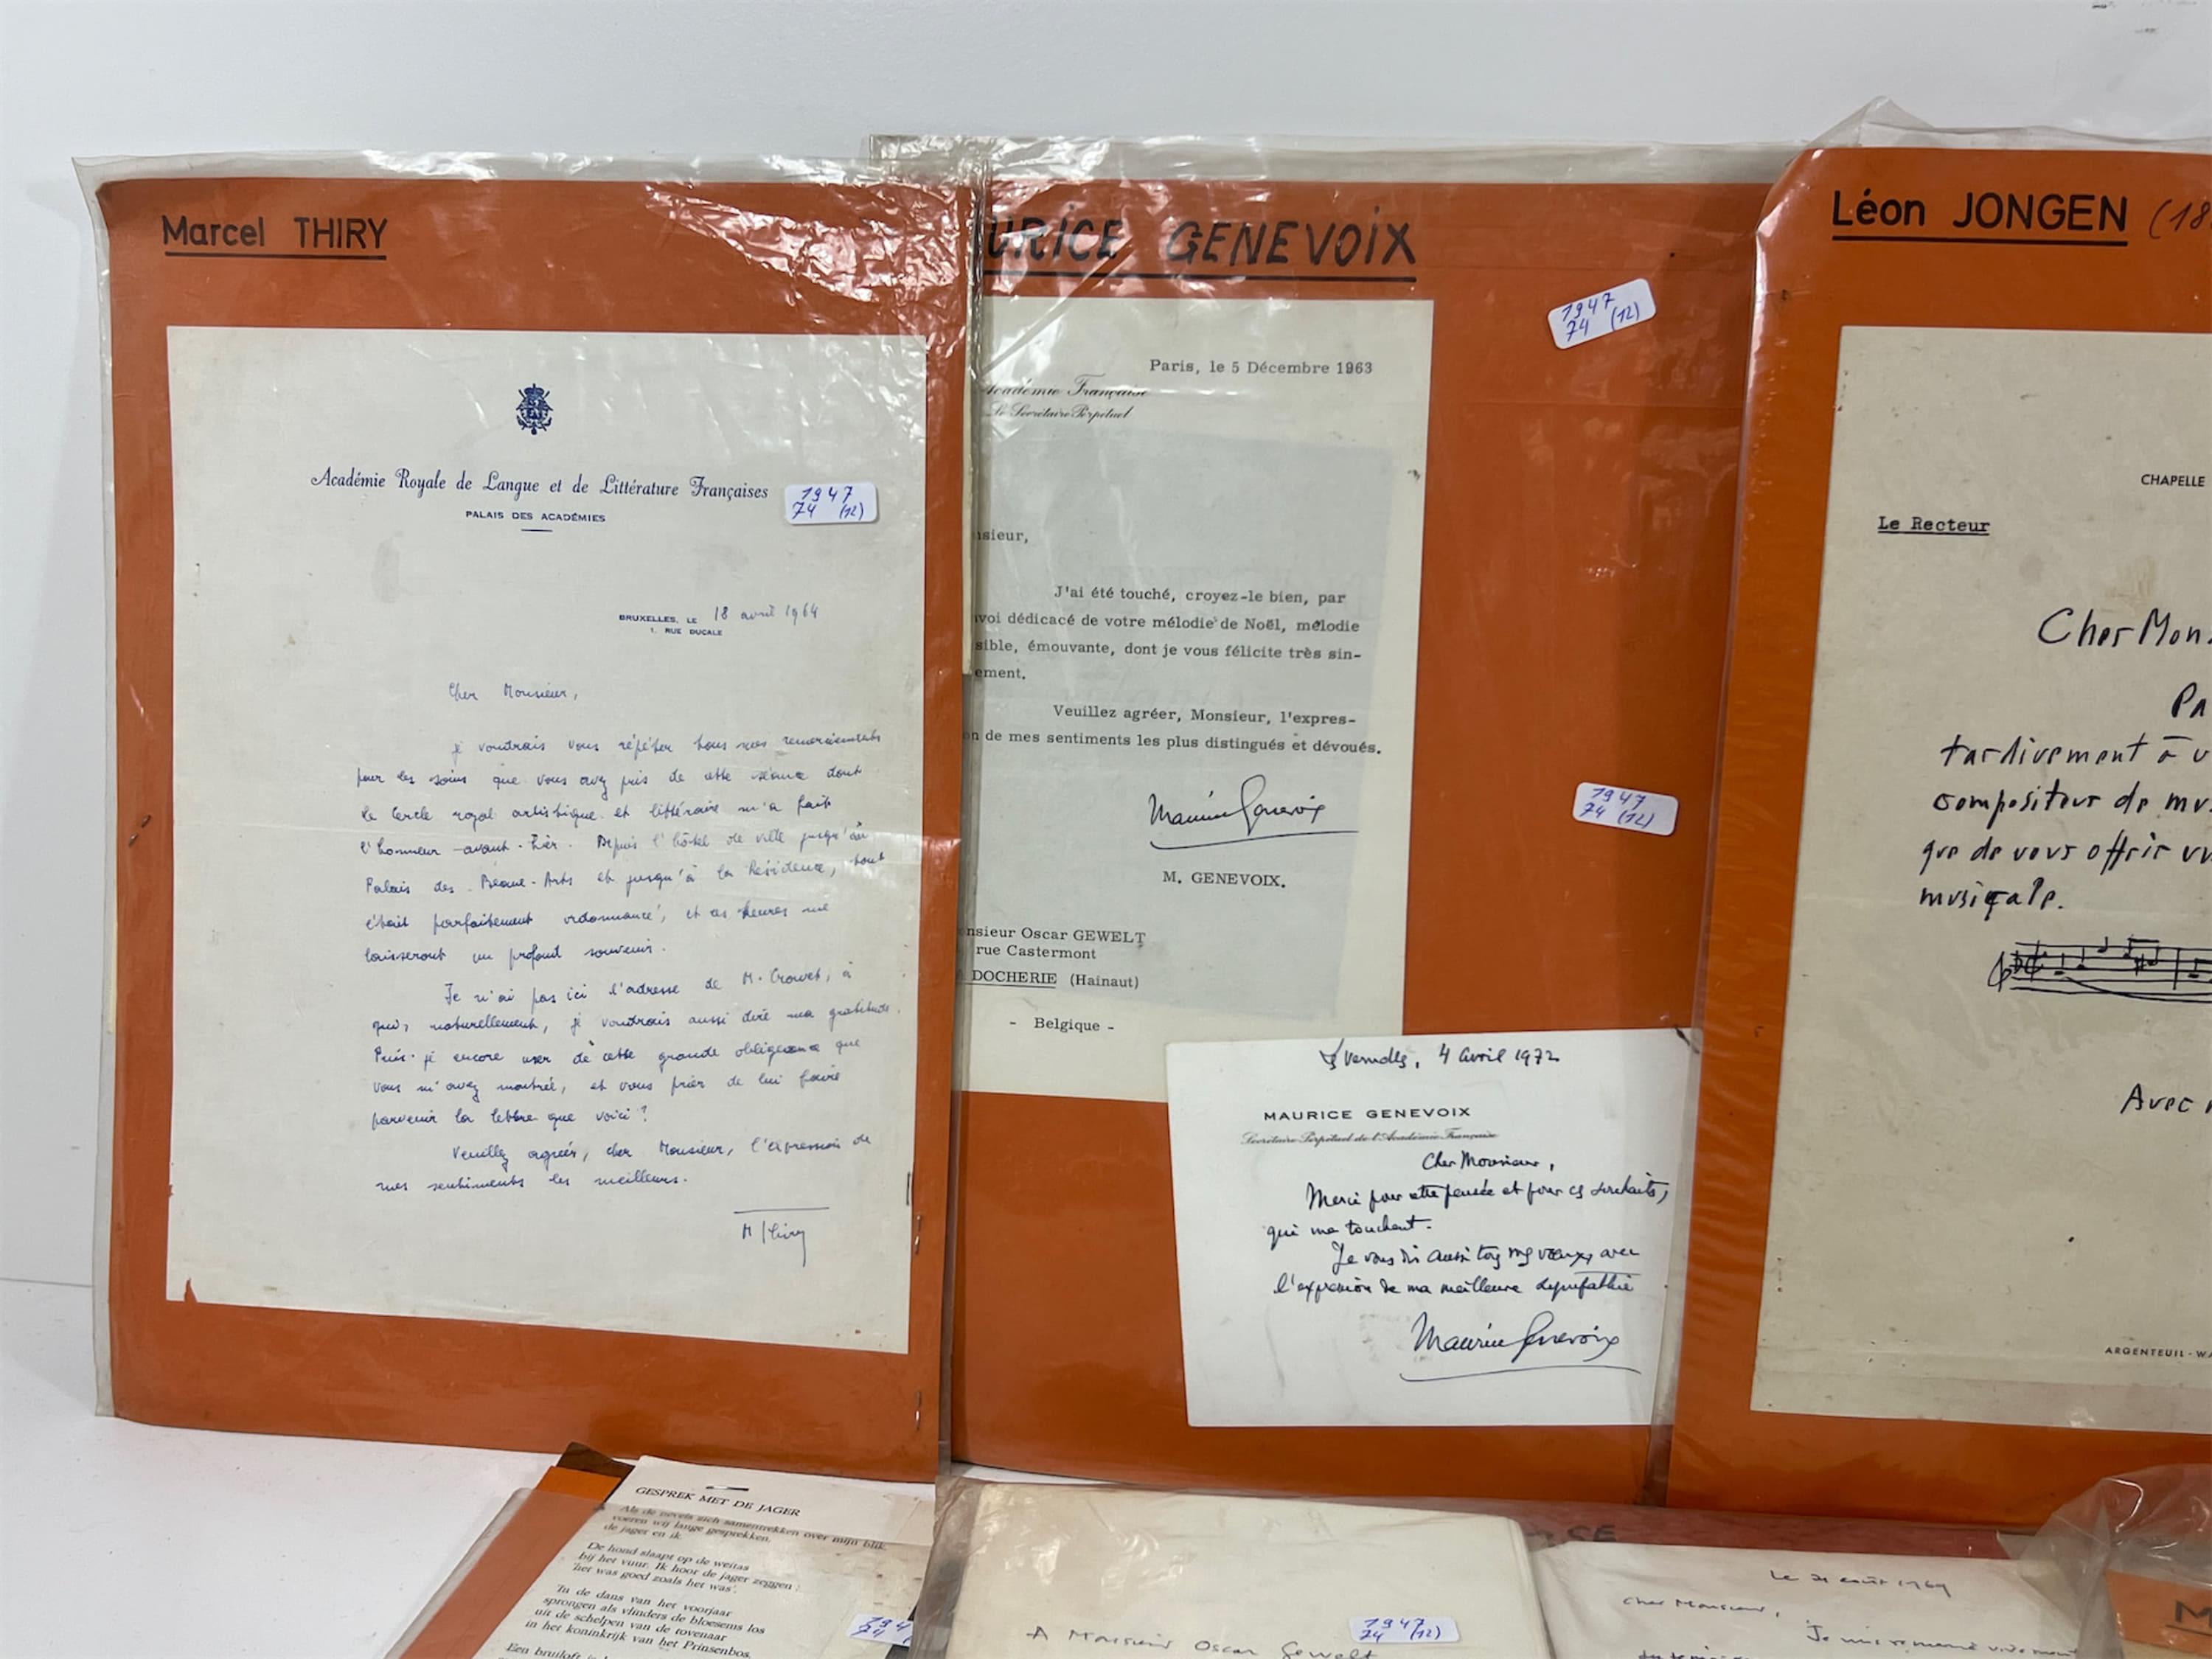 Marcel THIRY
Académie Royale de Langue et de Littérature Françaises
PALAIS DES ACADÉMIES
1947
74 (12)
BRUXELLES, LE 18 avril 1964
1, RUE DUCALE
Cher Monsieur,
je voudrais vous répéter tous mes remerciements
pour les soins que vous avez pris de cette séance dont
le Cercle royal artistique et littéraire m'a fait
l'honneur avant-hier. Depuis l'hôtel de ville jusqu'au
Palais des Beaux-Arts et jusqu'à la Résidence, tout
était parfaitement ordonnancé, et ces heures me
laisseront un profond souvenir.
Je n'ai pas ici l'adresse de M. Crouet, à
qui, naturellement, je voudrais aussi dire ma gratitude.
Puis-je encore user de cette grande obligeance que
vous m'avez montrée, et vous prier de lui faire
parvenir la lettre que voici ?
Veuillez agréer, cher Monsieur, l'expression de
mes sentiments les meilleurs.
M Thiry
URICE GENEVOIX
1947
74 (12)
Paris, le 5 Décembre 1963
Académie Française
Le Secrétaire Perpétuel
sieur,
J'ai été touché, croyez-le bien, par
voi dédicacé de votre mélodie de Noël, mélodie
sible, émouvante, dont je vous félicite très sin-
ement.
Veuillez agréer, Monsieur, l'expres-
n de mes sentiments les plus distingués et dévoués.
1947
74 (12)
Maurice Genevoix
M. GENEVOIX.
nsieur Oscar GEWELT
rue Castermont
DOCHERIE (Hainaut)
- Belgique -
Les Vernelles, 4 avril 1972
MAURICE GENEVOIX
Secrétaire Perpétuel de l'Académie Française
Cher Monsieur,
Merci pour votre pensée et pour ces souhaits,
qui me touchent.
Je vous dis aussi tous mes vœux, avec
l'expression de ma meilleure sympathie
Maurice Genevoix
Léon JONGEN (18
CHAPELLE
Le Recteur
Cher Mon
Pa
tardivement à v
compositeur de mu
que de vous offrir un
musicale.
Avec
ARGENTEUIL - WA
GESPREK MET DE JAGER
Als de nevels zich samentrekken over mijn blik,
voeren wij lange gesprekken,
de jager en ik.
De hond slaapt op de weitas
bij het vuur. Ik hoor de jager zeggen :
'het was goed zoals het was'.
In de dans van het voorjaar
sprongen als vlinders de bloesems los
uit de schelpen van de tovenaar
in het koninkrijk van het Prinsenbos.
Een bruiloft
194
74
1947
74 (12)
A Monsieur Oscar Gewelt
Le 21 août 1969
Cher Monsieur,
Je
M